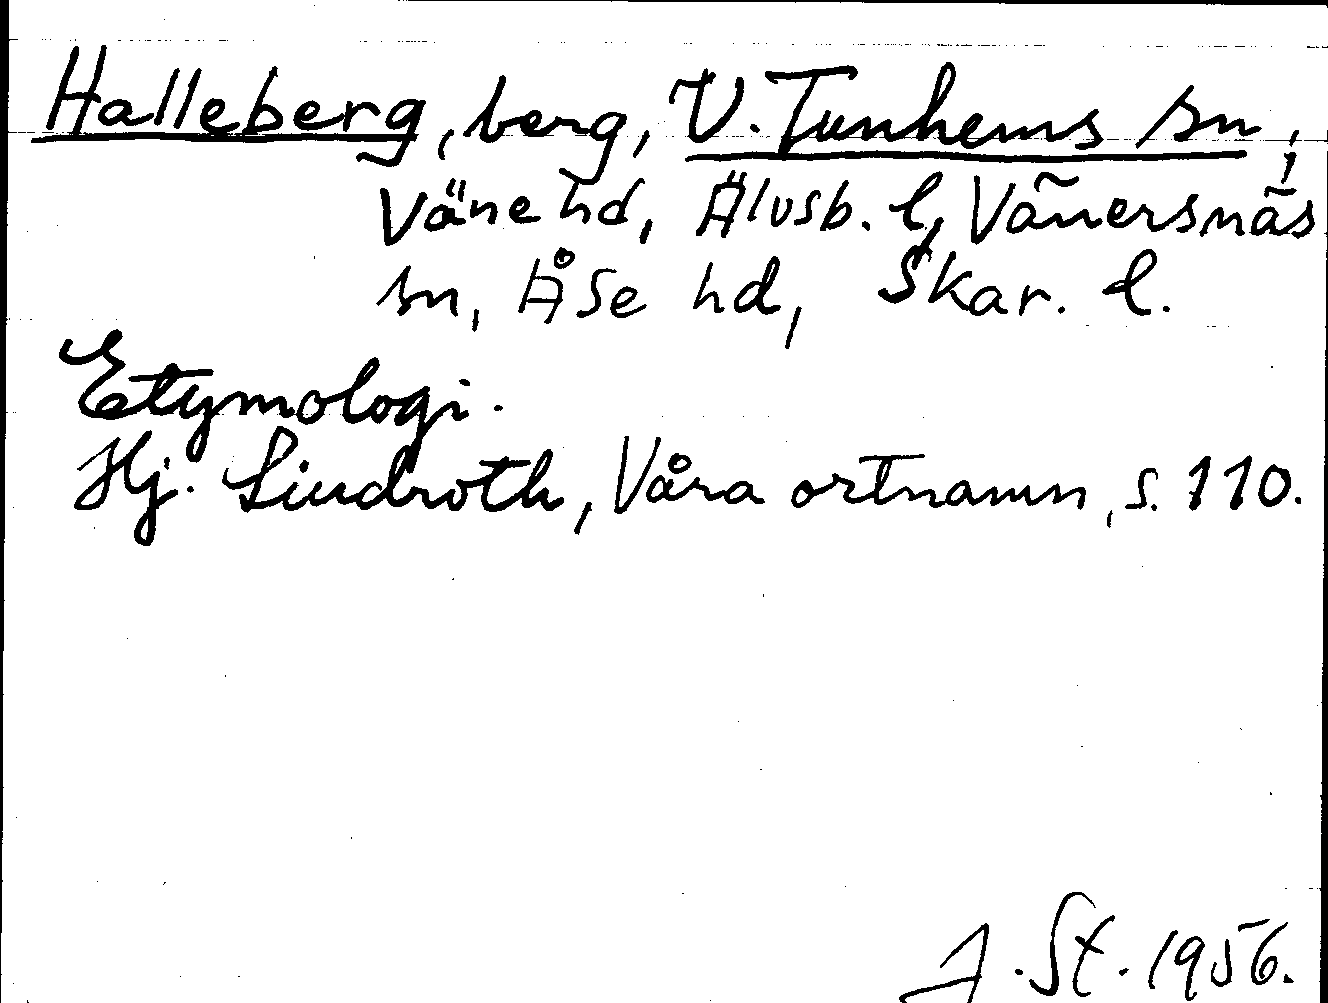 Halleberg, berg, V. Tunhems sn,
Väne hd, Älvsb. l, Vänersnäs
sn, Åse hd, Skar. l.
Etymologi.
Hj. Lindroth, Våra ortnamn, s. 110.
A. St. 1956.